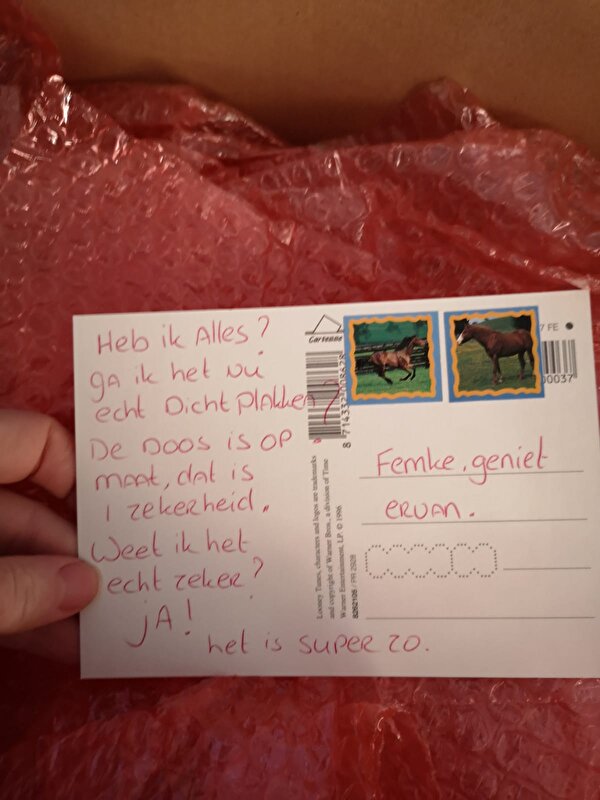 Heb ik Alles?
ga ik het nu
echt Dicht plakken?
De Doos is op
maat, dat is
1 zekerheid.
Weet ik het
echt zeker?
jA!
het is super zo.
Cartenne
8 714337 008628
Looney Tunes, characters and logos are trademarks
and copyright of Warner Bros., a division of Time
Warner Entertainment, LP. © 1996
7 FE
00037
Femke, geniet
ervan.